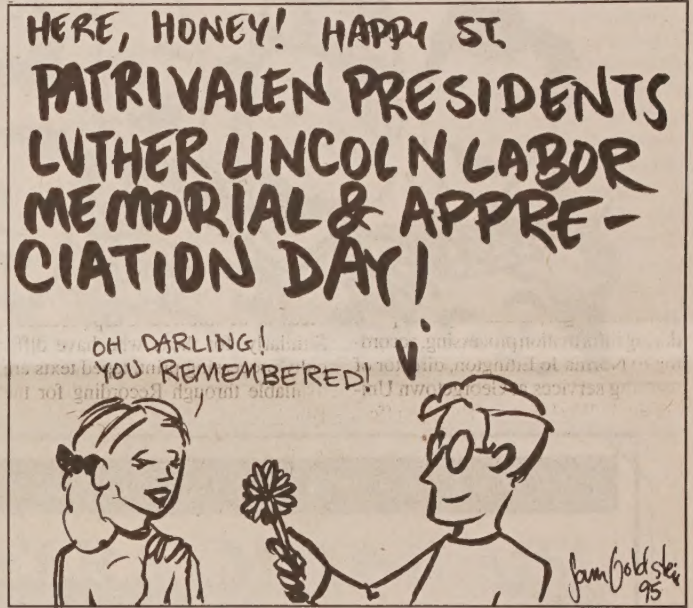 HERE, HONEY! HAPPY ST.
PATRIVALEN PRESIDENTS
LUTHER LINCOLN LABOR
MEMORIAL & APPRE-
CIATION DAY!
OH DARLING!
YOU REMEMBERED!
Sam Goldstein
95